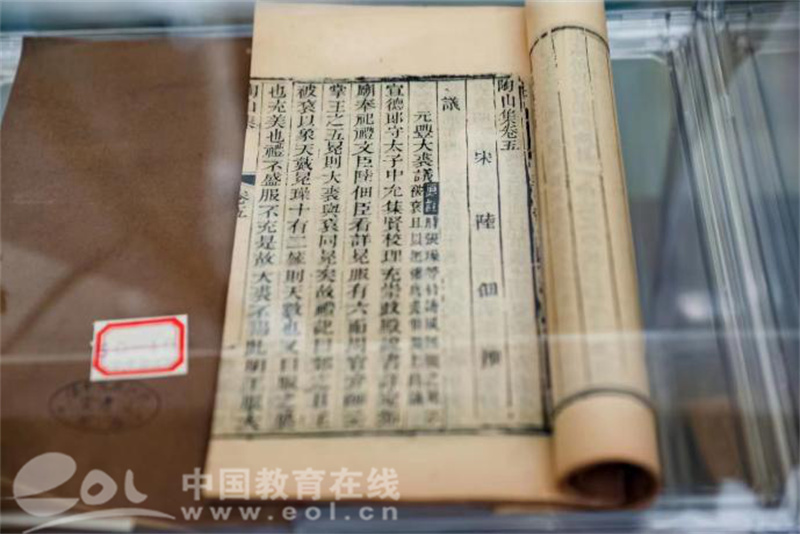 陶山集卷五
宋陸佃撰
議
元豐大裘議
宣德郎守太子中允集賢校理充崇政殿說書詳定郊
廟奉祀禮文臣陸佃臣看詳冕服有六而周官弁師云
掌王之五冕則大裘與袞同冕矣故禮記曰郊之日王
被袞以象天戴冕璪十有二旒則天數也又曰服之襲
也充美也禮不盛服不充是故大裘不裼此明王服大
陶山集 卷五
eol 中国教育在线
www.eol.cn